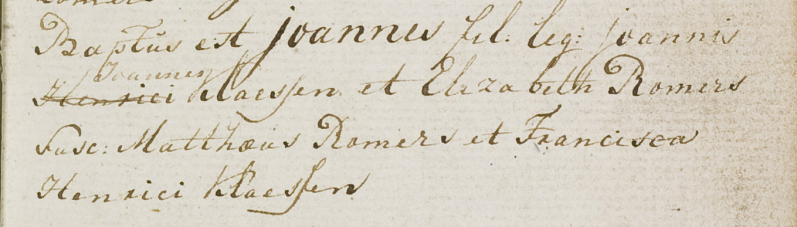 Romers
Baptũs est joannes fil: leg: joannis
Joannes
Henrici Klaessen et Elizabeth Romers
Susc: Matthæus Romers et Francisca
Henrici Klaessen